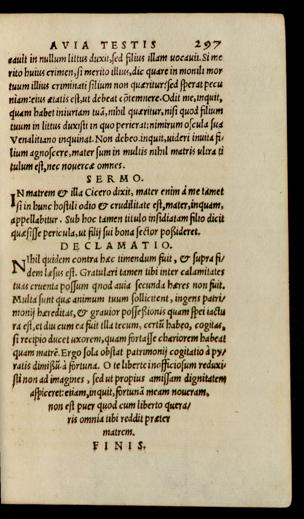 AVIA TESTIS 297
cauit in nullum littus duxit, sed filius illam uocauit. Si me
rito huius crimen, si merito illius, dic quare in monili mor
tuum illius criminati filium non quæritur: sed sperat pecu
niam: eius ætatis est, ut debeat cōtemnere. Odit me, inquit,
quam habet iniuriam tuā, nihil quæritur, nisi quod filium
tuum in littus duxisti in quo perierat: nimirum oscula sua
Venalitano inquinat. Non debeo. inquit, uideri inuita fi-
lium agnoscere, mater sum in multis nihil matris ultra ti
tulum est, nec nouercæ omnes.
SERMO.
IN matrem & illa Cicero dixit, mater enim à me tamet
si in hunc hostili odio & crudelitate est, mater, inquam,
appellabitur. Sub hoc tamen titulo insidiatam filio dicit
quæsisse pericula, ut filij sui bona sector possideret.
DECLAMATIO.
NIhil quidem contra hæc timendum fuit, & supra fi-
dem læsus est. Gratulari tamen tibi inter calamitates
tuas cruenta possum quod auia secunda hæres non fuit.
Multa sunt quæ animum tuum sollicitent, ingens patri-
monij hæreditas, & grauior possessionis quam spei iactu
ra est, et diu cum ea fuit illa tecum, certū habeo, cogitas,
si recipio ducet uxorem, quam fortasse chariorem habeat
quam matrē. Ergo sola obstat patrimonij cogitatio à py-
ratis dimissū à fortuna. O te liberte inofficiosum reduxi-
sti non ad imagines, sed ut propius amissam dignitatem
aspiceret: etiam, inquit, fortunā meam noueram,
non est puer quod cum liberto quera-
ris omnia tibi reddit præter
matrem.
FINIS.